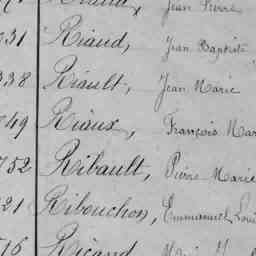 Jean Pierre
31 Riaud, Jean Baptiste
338 Riault, Jean Marie
49 Riaux, François Mar
752 Ribault, Pierre Marie
21 Ribouchon, Emmanuel Loui
Ricaud